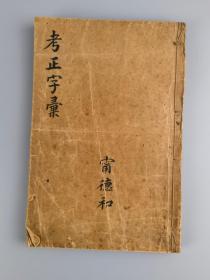 考正字彙
甯德和